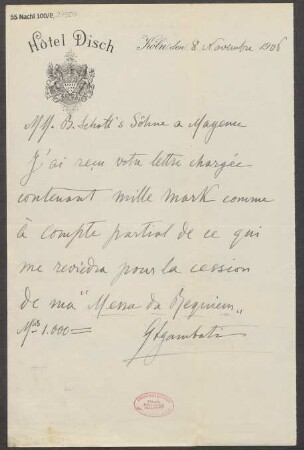 55 Nachl 100/B,
Hôtel Disch
Köln, den 8. Novembre 1906
MM. B. Schott's Söhne a Mayence
J'ai reçu votre lettre chargée
contenant mille mark comme
à compte partial de ce qui
me reviedra pour la cession
de ma "Messa da Requiem"
Mks 1.000=
GSgambati